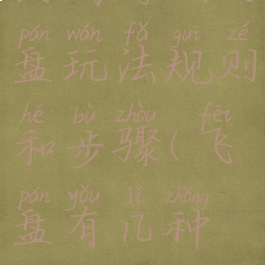 pán wán fǎ guī zé
盘玩法规则
hé bù zhòu fēi
和步骤(飞
pán yǒu jǐ zhǒng
盘有几种